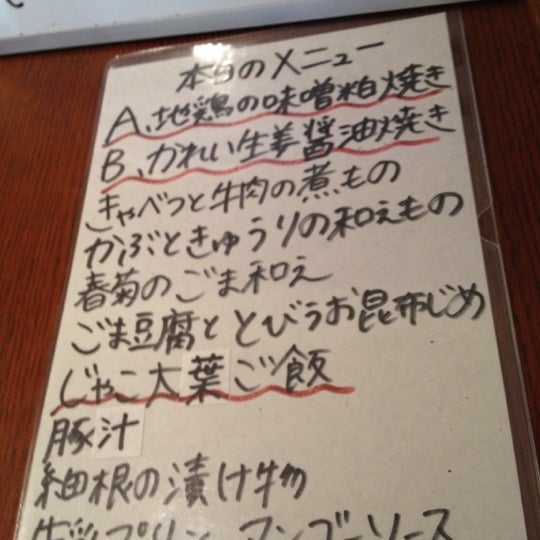 本日のメニュー
A、地鶏の味噌粕焼き
B、かれい生姜醤油焼き
きゃべつと牛肉の煮もの
かぶときゅうりの和えもの
春菊のごま和え
ごま豆腐ととびうお昆布じめ
じゃこ大葉ご飯
豚汁
細根の漬け物
プリン マンゴーソース